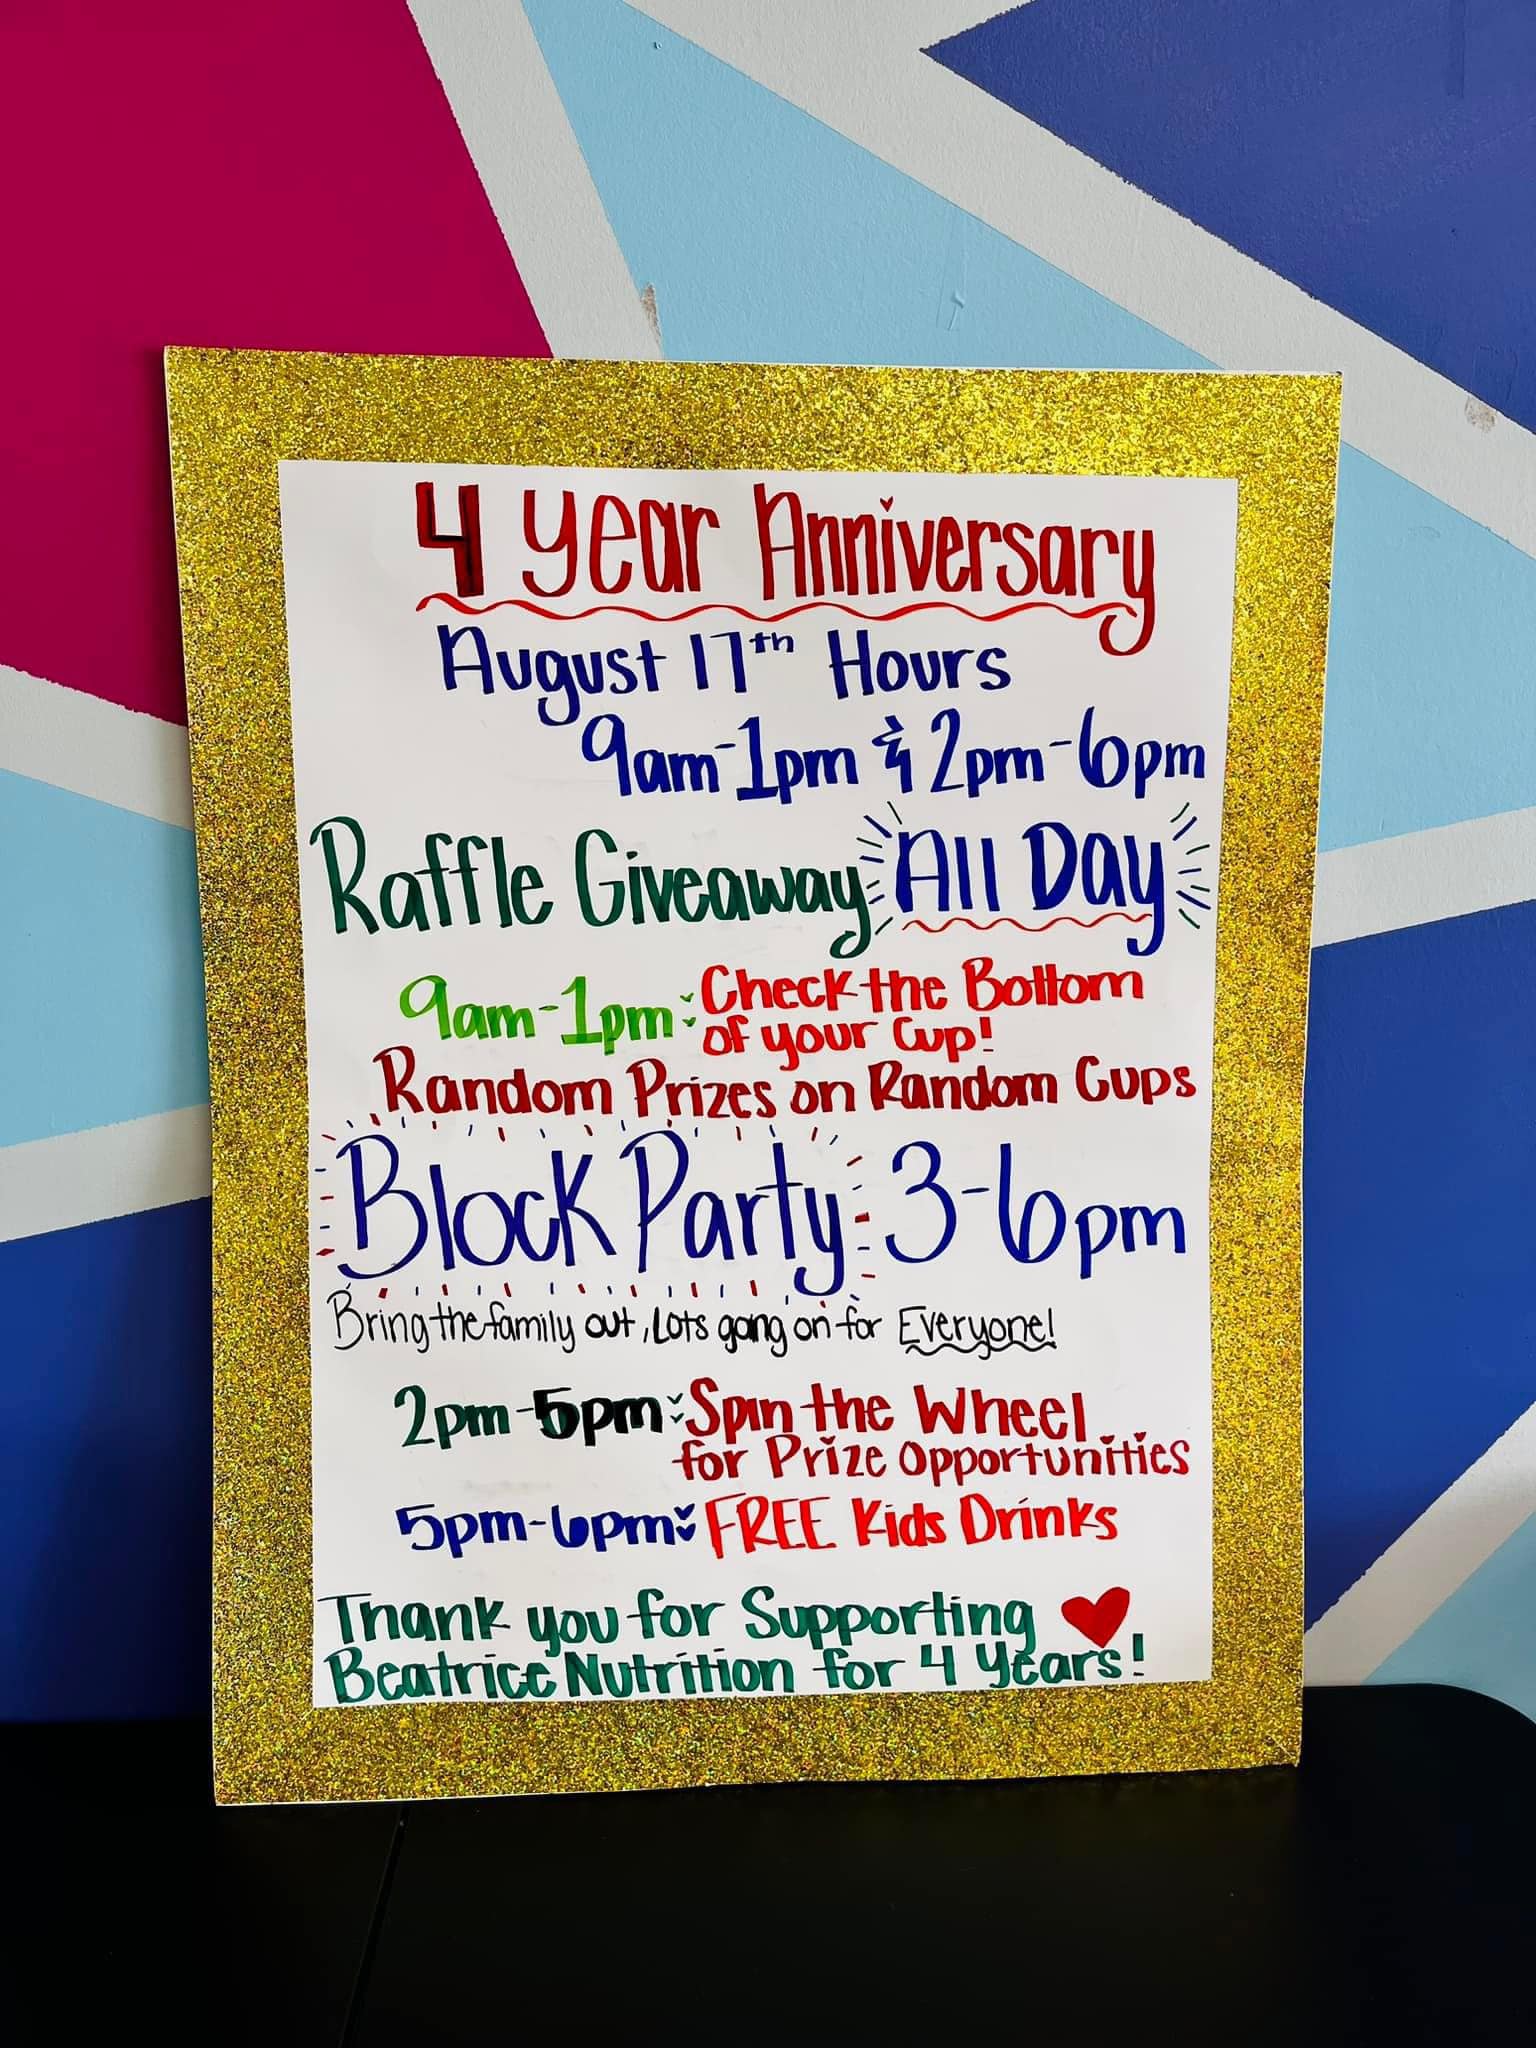 4 Year Anniversary
August 17th Hours
9am-1pm & 2pm-6pm
Raffle Giveaway All Day
9am-1pm: Check the Bottom
of your Cup!
Random Prizes on Random Cups
Block Party 3-6pm
Bring the family out, Lots going on for Everyone!
2pm-5pm: Spin the Wheel
for Prize Opportunities
5pm-6pm: FREE Kids Drinks
Thank you for Supporting
Beatrice Nutrition for 4 Years!